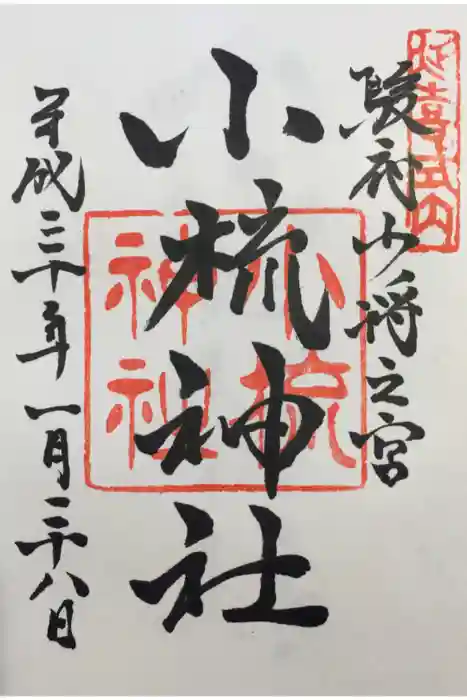 延喜式内
駿府少将之宮
小梳神社
小梳神社
平成三十年一月二十八日